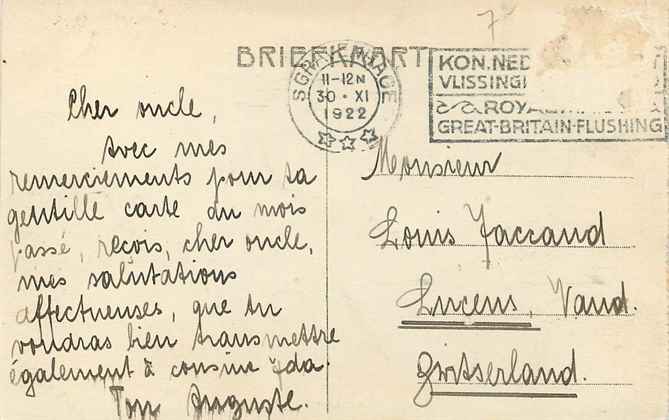 7
BRIEFKAART
SGRAVENHAGE
11-12N
30·XI
1922
KON.NED
VLISSING
ROYAL
GREAT-BRITAIN-FLUSHING
Cher oncle,
Avec mes
remerciements pour ta
gentille carte du mois
passé, reçois, cher oncle,
mes salutations
affectueuses, que tu
voudras bien transmettre
également à cousine Ida.
Ton Auguste.
Monsieur
Louis Jaccaud
Lucens, Vaud.
Zwitserland.